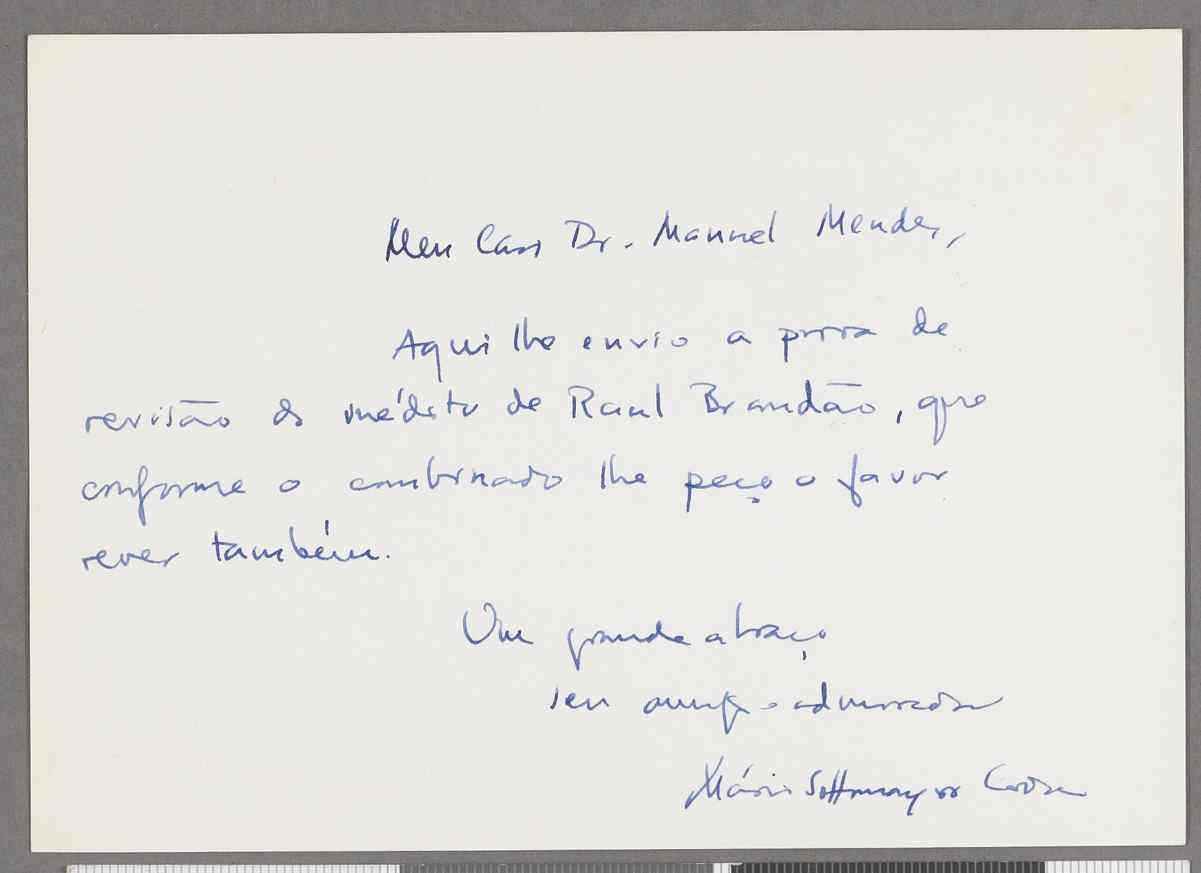 Meu Caro Dr. Manuel Mendes,
Aqui lhe envio a prova de
revisão do inédito de Raul Brandão, que
conforme o combinado lhe peço o favor
rever também.
Um grande abraço
seu amigo e admirador
Mário Sottomayor Cardia